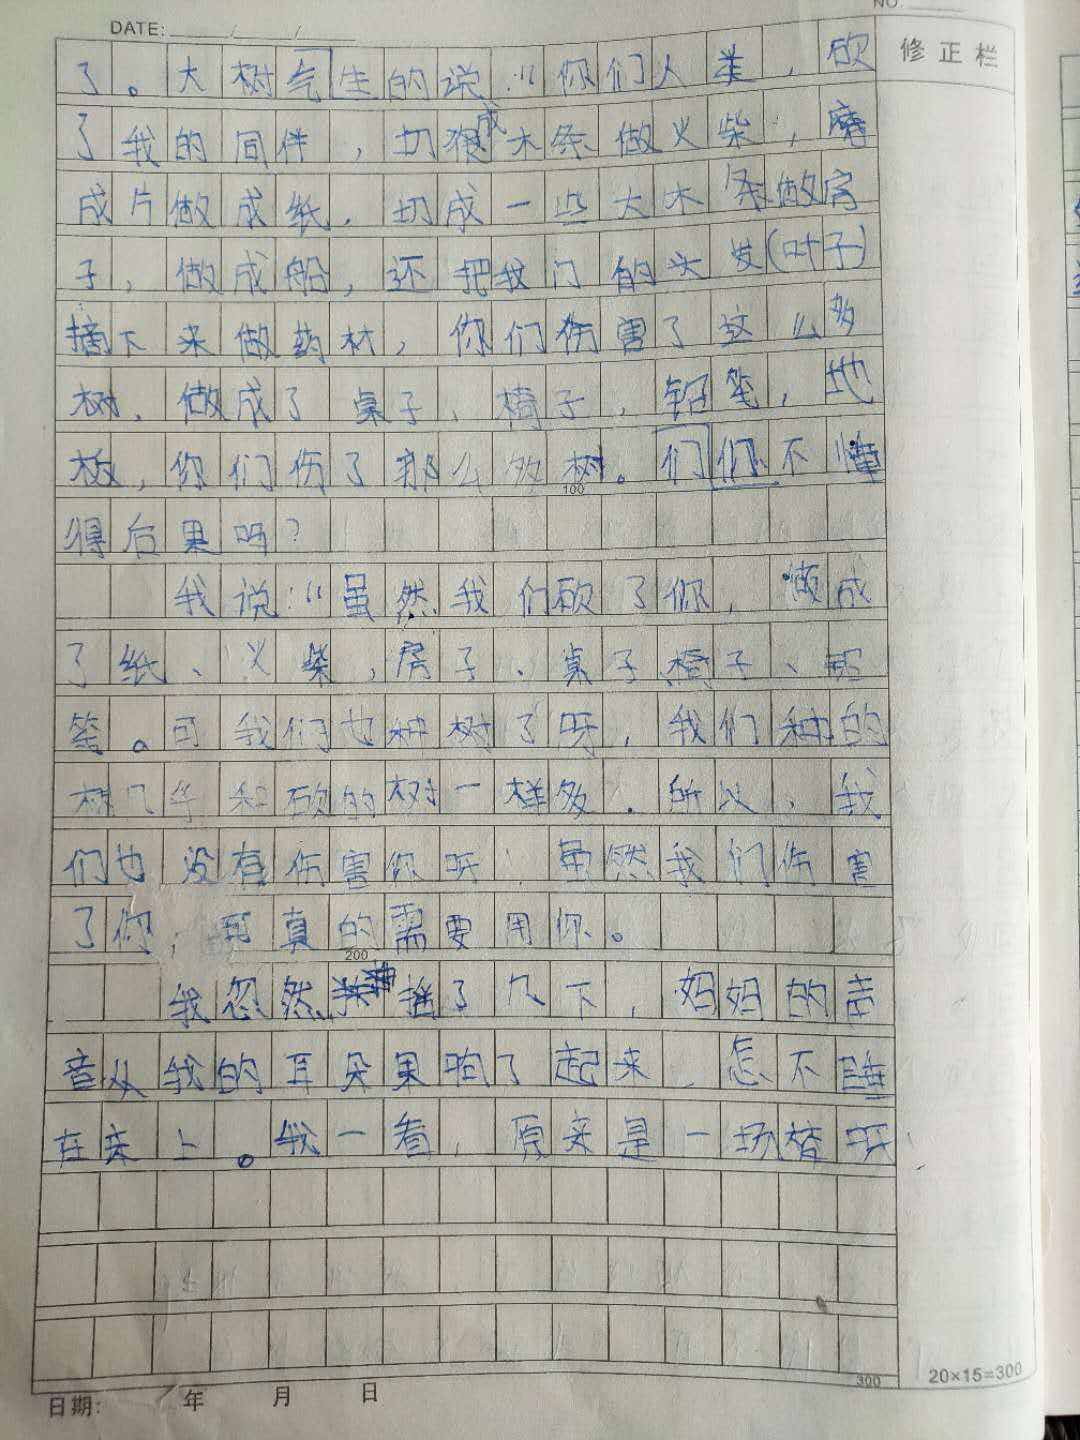 DATE: ___/___/___
NO.
修正栏
了。大树气生的说:“你们人类,砍
了我的同伴,切成木条做火柴,磨
成片做成纸,切成一些大木条做房
子,做成船,还把我门的头发(叶子)
摘下来做药材,你们伤害了这么多
树,做成了桌子、椅子,铅笔,地
板,你们伤了那么多树。们们不懂
100
得后果吗?
我说:“虽然我们砍了你,做成
了纸、火柴,房子、桌子椅子、铅
笔。可我们也种树了呀,我们种的
树几乎和砍的树一样多.所以、我
们也没有伤害你呀!虽然我们伤害
了你,可真的需要用你。
200
我忽然摇了几下,妈妈的声
音从我的耳朵里响了起来,怎不睡
在床上。我一看,原来是一场梦呀
300
20×15=300
日期: 年 月 日